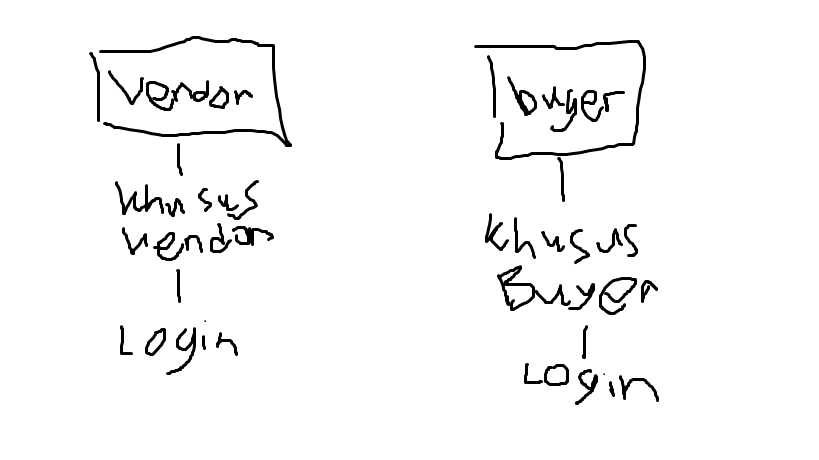 Vendor
khusus
vendor
Login
buyer
khusus
Buyer
Login